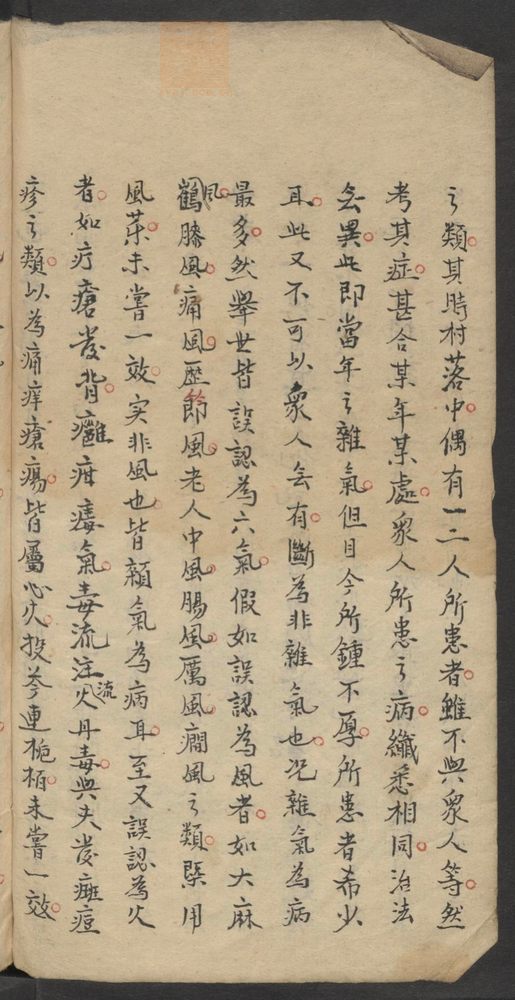 之類其時村落中偶有一二人所患者雖不與衆人等然
考其症甚合某年某處衆人所患之病纖悉相同治法
无異此即當年之雜氣但目今所鍾不厚所患者希少
耳此又不可以衆人无有斷為非雜氣也况雜氣為病
最多然舉世皆誤認為六氣假如誤認為風者如大麻
風鶴膝風痛風歷節風老人中風腸風厲風癇風之類槩用
風藥未嘗一效实非風也皆雜氣為病耳至又誤認為火
者如疔瘡發背癰疽痿氣毒流注流火丹毒與夫發斑痘
疹之類以為痛痒瘡瘍皆屬心火投芩連梔栢未嘗一效